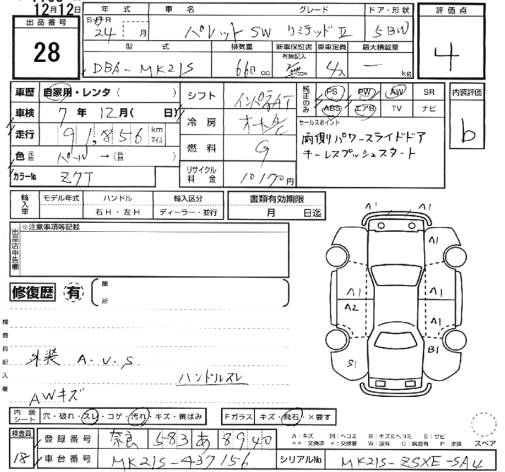 12月12日
出品番号
28
年式 車名 グレード ドア・形状
24 月 パレットSW リミテッドⅡ 5BW
評価点
4
型式 排気量 新車保証書 乗車定員 最大積載量
有無記入
DBA-MK21S 660cc 無 4人 — kg
車歴 自家用・レンタ( )
車検 7年12月(日)
走行 91,856 km マイル
色 元色 パール →( )
カラーNo ZCT
シフト インパネAT
冷房 オートA/C
燃料 G
リサイクル料金 10170円
純正のみ PS PW AW SR
ABS エアB TV ナビ
内装評価
b
セールスポイント
両側パワースライドドア
キーレスプッシュスタート
輸入車 モデル年式 ハンドル 輸入区分
右H・左H ディーラー・並行
書類有効期限
月 日迄
出品店申告欄
※注意事項等記載
修復歴 有 箇所
検査員記入欄
外装 A.U.S
ハンドルスレ
AWキズ
A1 A1
A1
A1
A2
A1
S1 B1
A1
内装シート 穴・破れ・スレ・コゲ・汚れ・キズ・黄ばみ
Fガラス キズ・飛石・×要す
A:キズ M:ヘコミ B:キズ&ヘコミ S:サビ
スペア
検査員
18
登録番号 奈良 583 あ 8940
車台番号 MK21S-437156
シリアルNo MK21S-ZSXE-SA4